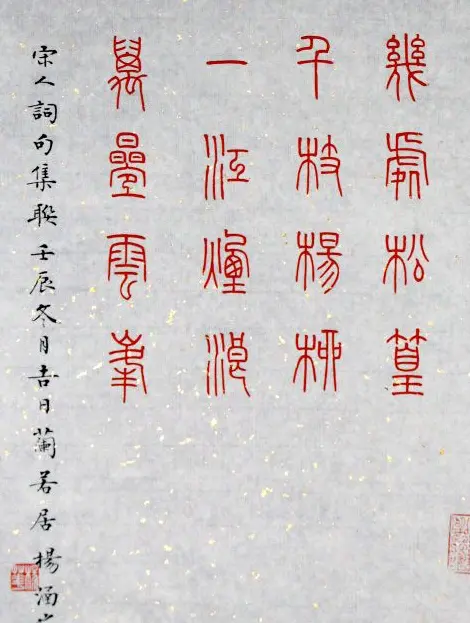 幾處松篁
千枝楊柳
一江煙浪
萬疊雲峯
宋人詞句集聯壬辰冬月吉日蘭若居楊